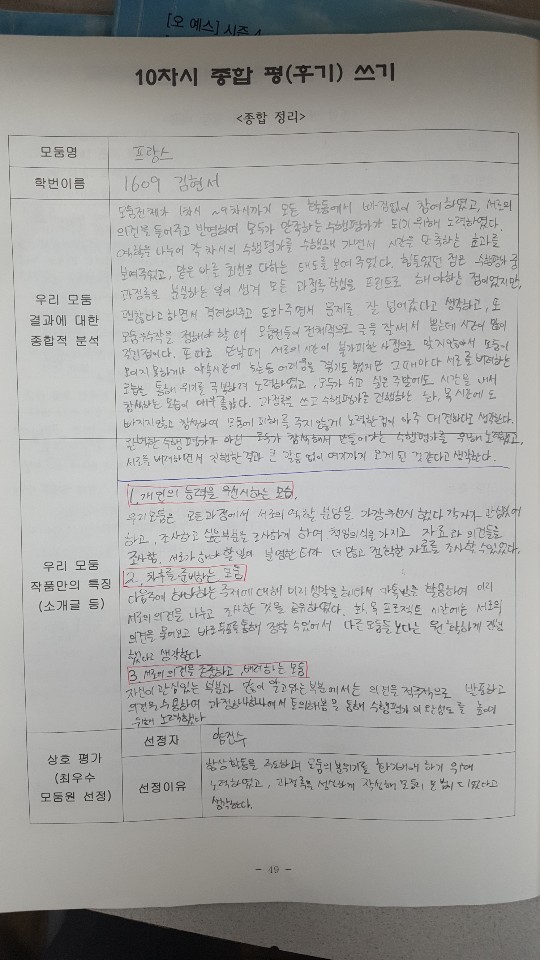 [오 예스] 시즌 4
10차시 종합 평(후기) 쓰기
<종합 정리>
모둠명
프랑스
학번이름
1609 김현서
우리 모둠
결과에 대한
종합적 분석
모둠전체가 1차시 ~9차시까지 모든 활동에서 빠짐없이 참여하였고, 서로의
의견을 들어주고 반영하며 모두가 만족하는 수행평가가 되기 위해 노력하였다.
역할을 나누어 각 차시의 수행평가를 수행해 가면서 시간을 단축하는 효과를
보여주었고, 맡은 바를 최선을 다하는 태도를 보여 주었다. 힘들었던 점은 수행평가 중
과정록을 분실하는 일이 생겨 모든 과정록 작성을 프린트로 해야하는 점이었지만,
괜찮다고 하면서 격려해주고 도와주면서 문제를 잘 넘어갔다고 생각하고, 또
정해야 할 때 모둠원들이 전체적으로
서로의 시간이 불가피한 사정으로 맞지 않아서 모둠이
어려움을 겪기도 했지만 그때마다 서로를 배려하는
모습을 통해 위기를 극복하려 노력하였고, 모두가 쉬고 싶은 주말에도 시간을 내서
참석하는 모습이 매우 좋았다. 과정록을 쓰고 수행평가를 진행하는 화, 목 시간에도
빠지지 않고 참석하여 모둠에 피해를 주지 않게 노력한 점이 아주 대견하다고 생각한다.
수행평가가 아닌 모두가 참석해서 만들어가는 수행평가를 위해 노력했고,
서로를 배려하면서 진행한 결과 큰 갈등 없이 여기까지 오게 된 것 같다고 생각한다.
우리 모둠
작품만의 특징
(소개글 등)
1. 개인의 능력을 우선시하는 모습
우리모둠은 모든 과정에서 서로의 역할 분담을 가장 우선시 했다. 각자가 관심있어
하고, 조사하고 싶은 부분을 조사하게 하여 책임의식을 가지고 자료와 의견들을
조사함. 서로가 해야 할 일이 분명한 터라 더 많고 정확한 자료를 조사할 수 있었다.
2. 차후를 준비하는 모습
다음주에 해당하는 주제에 대해 미리 생각을 해와서 카톡방을 활용하여 미리
서로의 의견을 나누고 조사한 것을 공유하였다. 화, 목 프로젝트 시간에는 서로의
의견을 물어보고 바로 투표를 통해 정할 수 있어서 다른 모둠들 보다는 원활하게 진행
했다고 생각한다
3. 서로의 의견을 존중하고, 배려하는 모습
자신이 관심있는 부분과 많이 알고있는 부분에서는 의견을 적극적으로 발표하고
의견을 수용하여 과정 하나하나에서 토의해봄을 통해 수행평가의 완성도를 높이기
위해 노력했다
상호 평가
(최우수
모둠원 선정)
선정자
선정이유
항상 활동을 주도하며 모둠의 분위기를 환기하게 하기 위해
노력하였고, 과정록을 성실하게 작성해 모둠의 모범이 되었다고
생각한다.
- 49 -